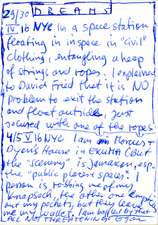 29/30 DREAMS
IV 16 NYC In a space station
floating in in space in "civil"
clothing, entangling a heap
of strings and ropes. I explained
to David Fried that it is NO
problem to exit the station
and float outside, just
secured with one of the ropes.
4/5 V 16 NYC I am in Horace +
Dyer's House in Exuma Court
the "scenery" is Jamaican, esp.
the "public places + spaces". 1
person is robbing me of my
knapsack, the other one empties
out my pockets, but they leave
me my wallet. I am baffled by that +
feel not threatening